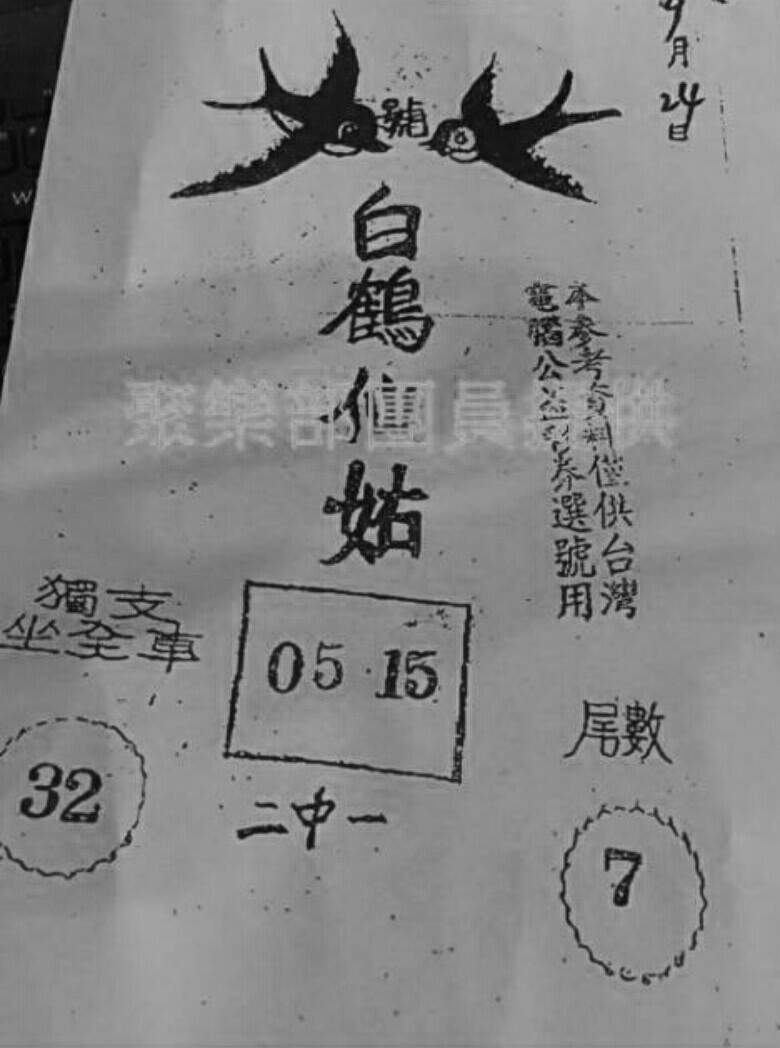 9月
24
日
號
白鶴仙姑
本參考資料僅供台灣
電腦公益彩券選號用
聚樂部團員提供
獨支
坐全車
05 15
32
二中一
尾數
7